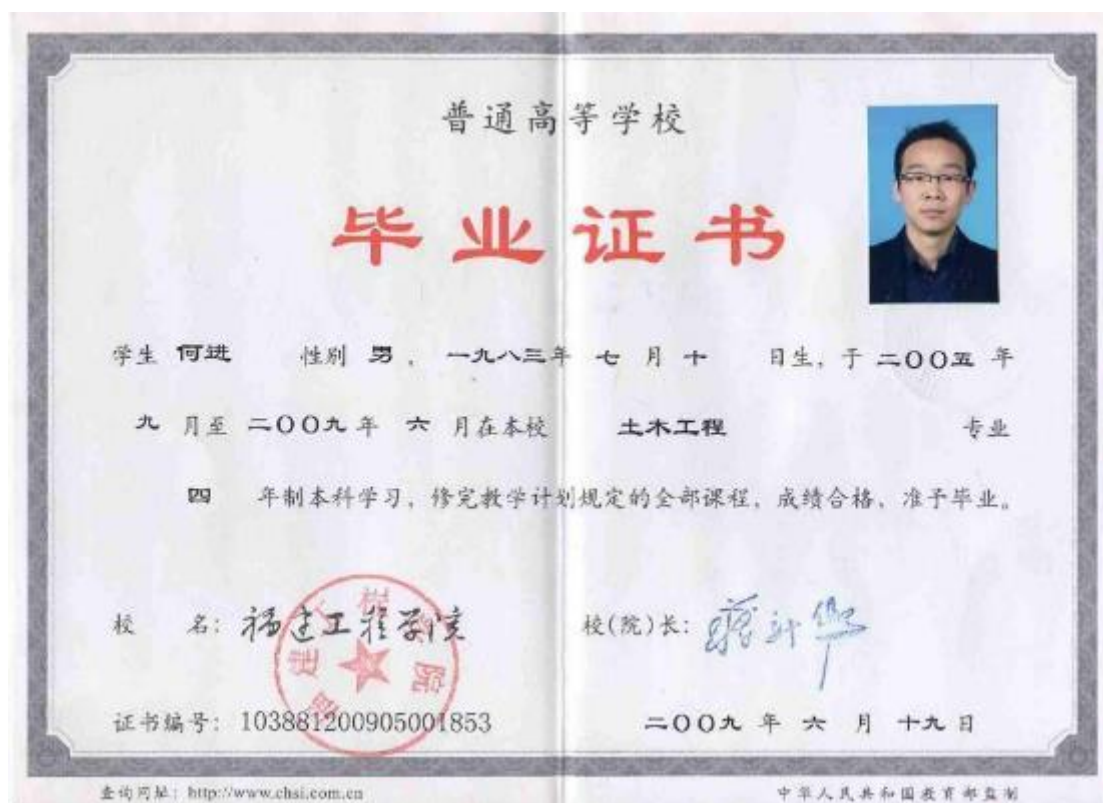 普通高等学校
毕业证书
学生 何进 性别 男， 一九八三年 七 月 十 日生，于 二〇〇五 年
九 月至 二〇〇九 年 六 月在本校 土木工程 专业
四 年制本科学习，修完教学计划规定的全部课程，成绩合格，准予毕业。
校 名：福建工程学院 校(院)长：蔣新華
证书编号：103881200905001853 二〇〇九 年 六 月 十九 日
查询网址：http://www.chsi.com.cn 中华人民共和国教育部监制